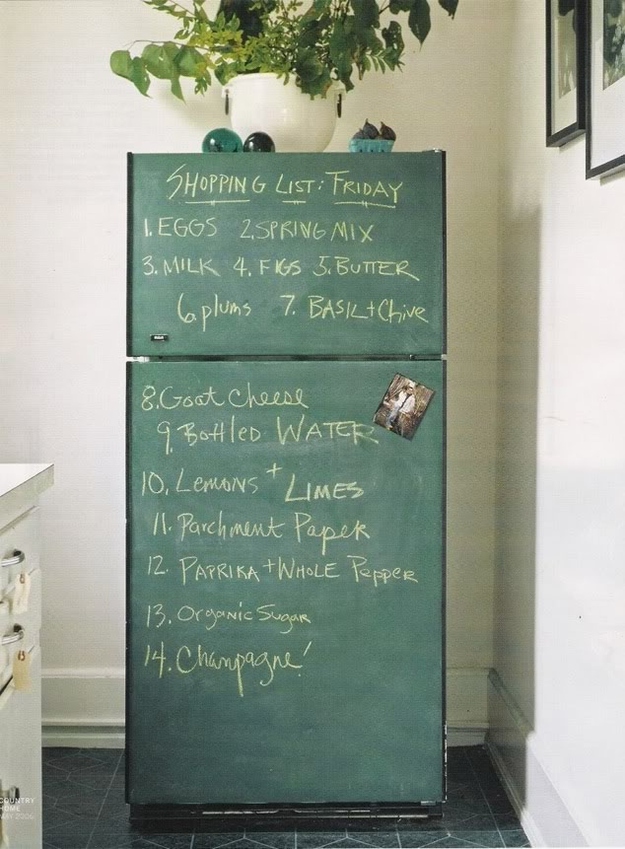 SHOPPING LIST: FRIDAY
1. EGGS 2. SPRING MIX
3. MILK 4. FIGS 5. BUTTER
6. plums 7. BASIL + Chive
8. Goat cheese
9. Bottled WATER
10. Lemons + LIMES
11. Parchment Paper
12. PAPRIKA + WHOLE Pepper
13. Organic Sugar
14. Champagne!
COUNTRY
HOME
2006